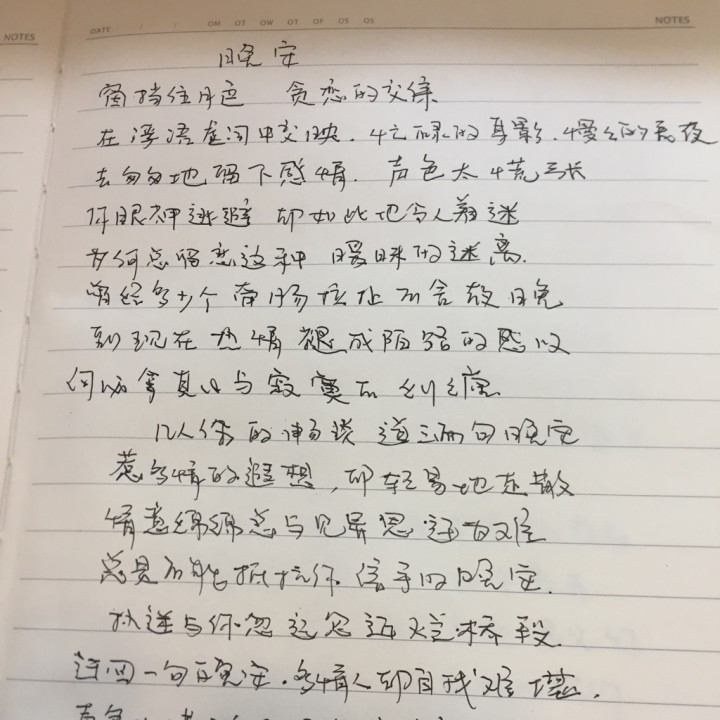 NOTES
DATE / / OM OT OW OT OF OS OS NOTES
晚安
窗挡住月色 贪恋的交缘
在浮语虚词中交映. 忙碌的身影. 慢的长夜
去匆匆地留下感情. 声色太慌张
你眼神逃避 却如此地令人着迷
为何总留恋这种 暧昧的迷离.
曾经多少个 拉扯不舍 晚
到现在 热情褪成陌路的感叹
何必拿真心与寂寞在纠缠
几人份的畅谈 道三两句晚安
惹多情的遐想, 却轻易地走散
情意绵绵总与见异思迁为难
总是不能抵抗你 信手的晚安.
与你忽远忽近 桥段.
这回一句晚安. 多情人却自找难堪.